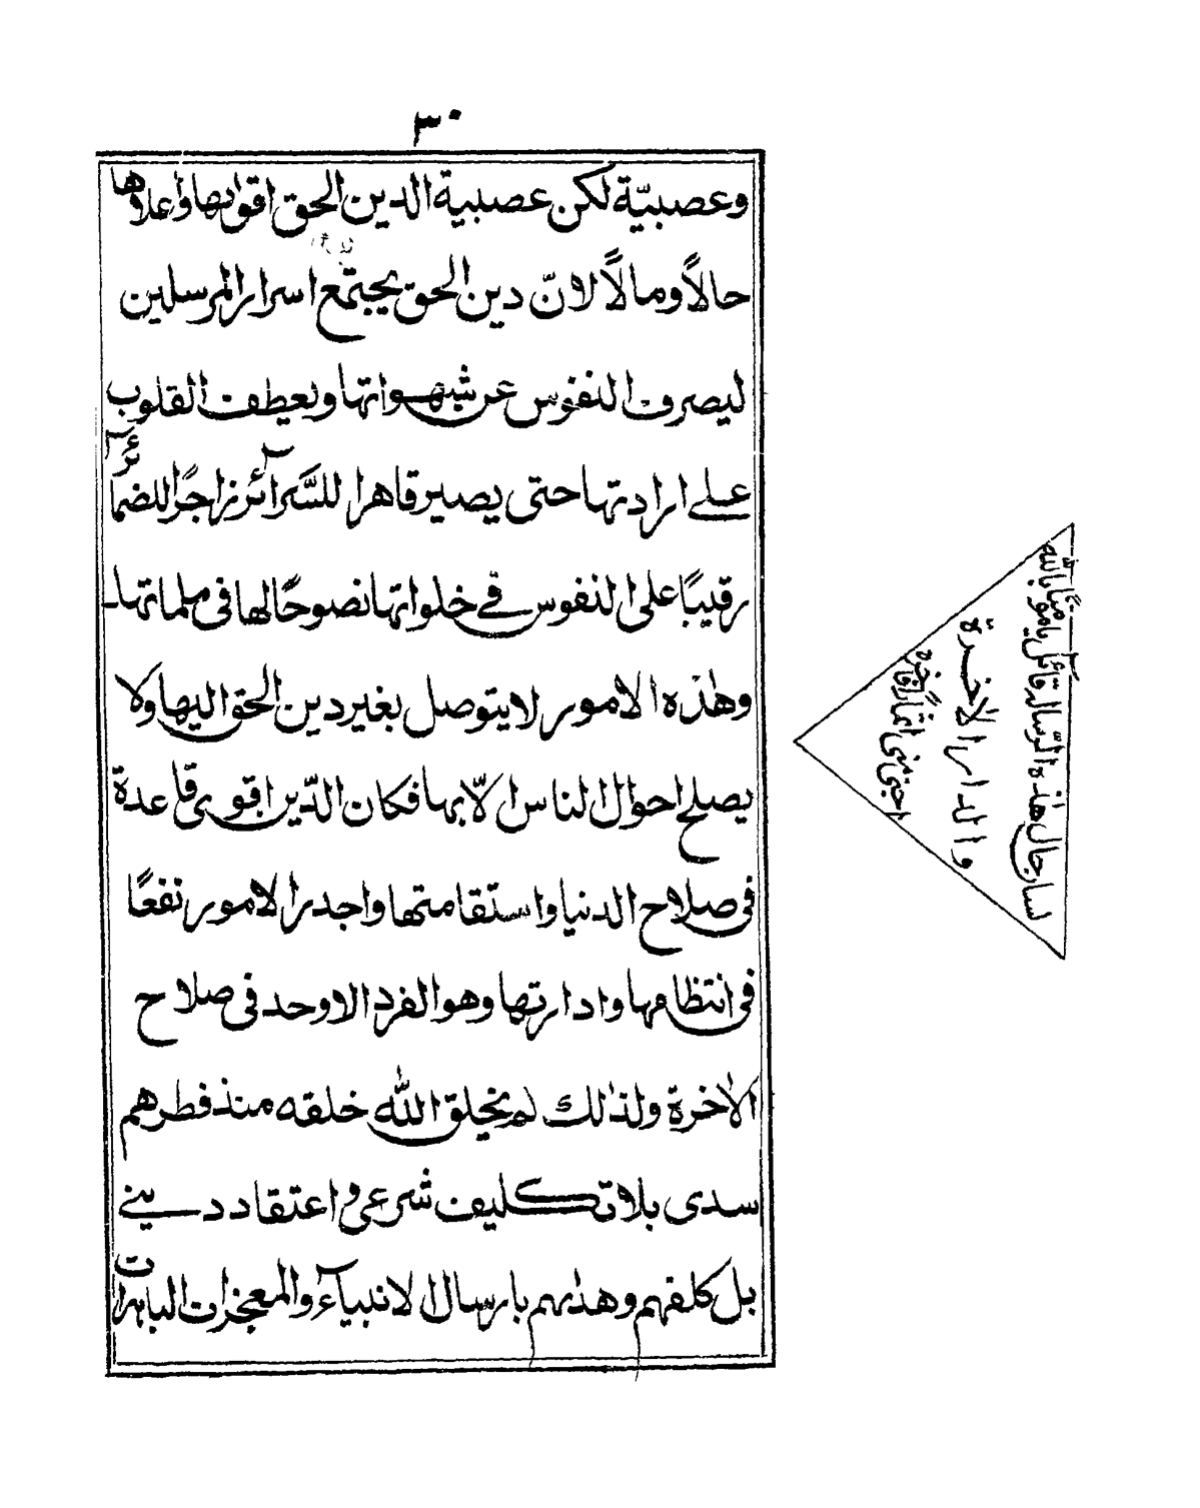 ٣٠
وعصبيّة لكن عصبية الدين الحق اقواها واعلاها
حالاً ومالاً لانّ دين الحق يجتمع اسرار المرسلين
ليصرف النفوس عن شهواتها ويعطف القلوب
على ارادتها حتى يصير قاهرا للسَّرآئر زاجرًا للضمآئر
رقيبًا على النفوس في خلواتها نصوحًا لها فى ملماتها
وهٰذه الامور لا يتوصل بغير دين الحق اليها ولا
يصلح احوال الناس الّا بها فكان الدّين اقوى قاعدة
فى صلاح الدنيا واستقامتها واجدر الامور نفعًا
فى انتظامها وادارتها وهو الفرد الاوحد فى صلاح
الاٰخرة ولذٰلك لم يخلق اللّٰه خلقه منذ فطرهم
سدى بلا تكليف شرعى واعتقاد دينے
بل كلفهم وهذبهم بارسال الانبيآء والمعجزات الباهرات
لسان حال هٰذه الرّسالة قآئل يا مؤمنًا باللّٰه
والدار الاٰخرة
اجتنى منى اثمارًا فاخره